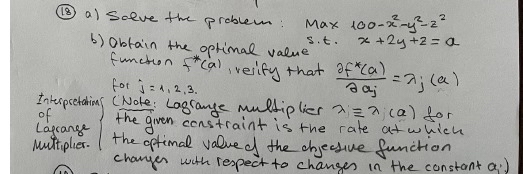 (18) a) Solve the problem: Max 100-x²-y²-z²
s.t. x+2y+z=a
b) Obtain the optimal value
function f*(a), verify that ∂f*(a)/∂aj = λj(a)
for j=1,2,3.
Interpretation of Lagrange Multiplier.
(Note: Lagrange multiplier λ ≡ λ(a) for
the given constraint is the rate at which
the optimal value of the objective function
changes with respect to changes in the constant aj)